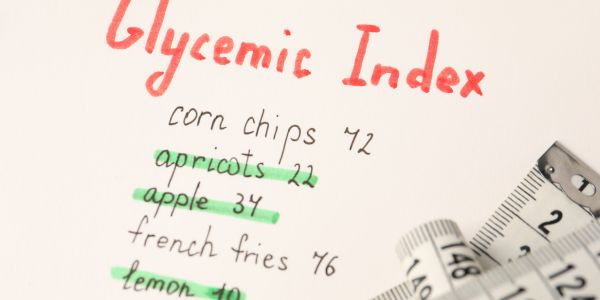 Glycemic Index
corn chips 72
apricots 22
apple 34
french fries 76
lemon 10
1
2
148